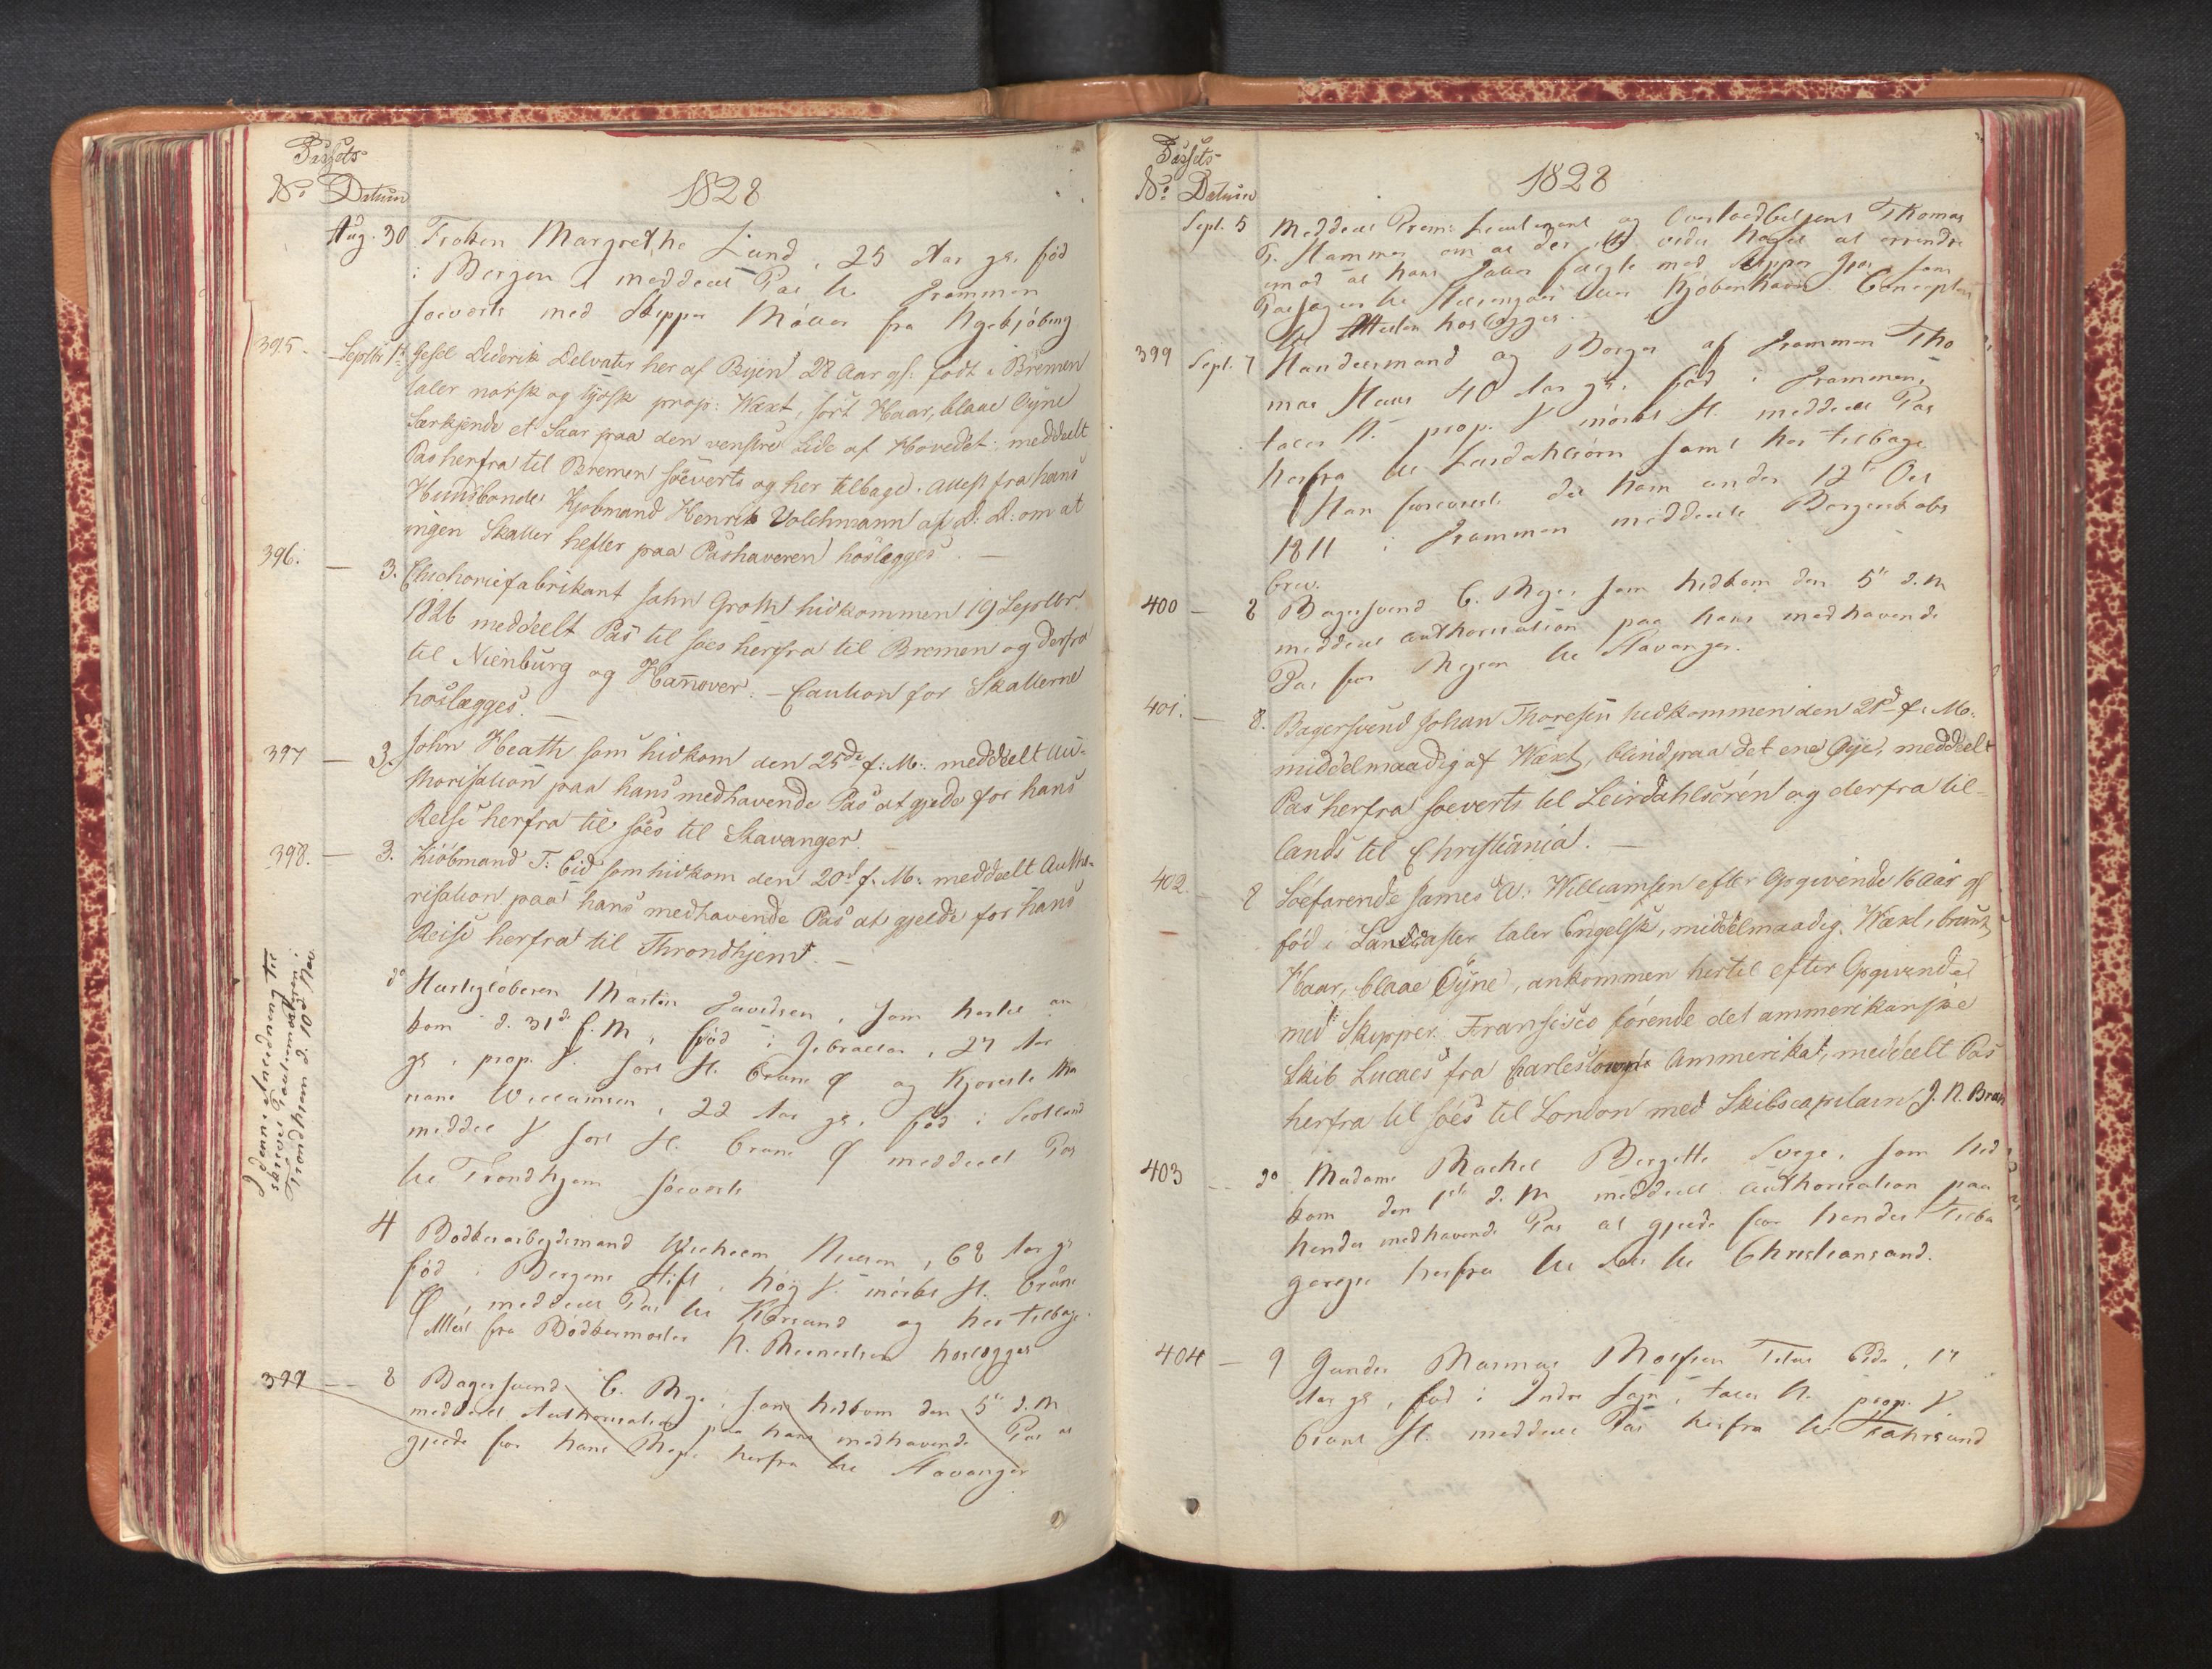 Passets
No Datum
1828
Aug. 30 Frøken Margrethe Lund, 25 Aar gl. fød
i Bergen meddeelt Pas til Drammen
søeverts med Skipper Møller fra Nykjøbing
395. Septbr 1st Gesel Diderik Delvater her af Byen 28 Aar gl: født i Bremen
taler norsk og tydsk prop: Wæxt, sort Haar, blaae Øyne
Særkjende et Saar paa den venstre Side af Hovedet: meddeelt
Pas herfra til Bremen søeverts og her tilbage. Attest fra hans
Huusbonde Kjøbmand Henrik Volchmann af D: D: om at
ingen Skatter hefter paa Pashaveren hoslægges. —
396. — 3. Chichoriefabrikant John Groth hidkommen 19 Septbr.
1826 meddeelt Pas til søes herfra til Bremen og derfra
til Nienburg og Hanover. — Caution for Skatterne
hoslægges. —
397 — 3. John Heath som hidkom den 25de f: M: meddeelt Au-
thorisation paa hans medhavende Pas at gjelde for hans
Reise herfra til søes til Stavanger.
398. — 3. Kiøbmand T: Eid som hidkom den 20d f: M: meddeelt Autho-
risation paa hans medhavende Pas at gjelde for hans
Reise herfra til Throndhjem. —
do Martin Davidsen, som hertil an
kom d. 31de f. M, fød i Gibraltar, 27 Aar
gl, prop. V. sort H. brune Ø og Kjæreste Ma
riane Williamsen, 22 Aar gl. fød i Scotland
middel V sort H. brune Ø meddeelt Pas
til Trondhjem søeverts
4 Bødkerarbejdsmand Wilhelm Nielsen, 68 Aar gl
fød i Bergens Stift, høy V. mørkt H. brune
Ø, meddeelt Pas til Krsand og her tilbage.
Attest fra Bødkermester N. hoslægges
399 — 8 Bagersvend C. Myge, som hidkom den 5te d. M
meddeelt Authorisation paa hans medhavende Pas at
gjelde for hans Rejse herfra til Stavanger
Passets
No Datum
1828
Sept. 5 Meddeelt Prem: Lieutenant og Thomas
T. Hammer om at der ikke vides Noget at erindre
imod at hans følgte med Skipper som
Passageer til Helsingør eller Kjøbenhavn. Concepten
til Attesten hoslægges. —
399 Sept. 7 Handelsmand og Borger af Drammen Tho
mas 40 Aar gl. fød i Drammen,
taler N. prop. V mørkt H. meddeelt Pas
herfra til Leirdahlsøren samt her tilbage
(Han foreviste det ham under 12te Oct
1811 i Drammen meddeelte Borgerskabs
brev.
400 — 8 Bagersvend C. Myge, som hidkom den 5te d. M
meddeelt Authorisation paa hans medhavende
Pas for Rejsen til Stavanger.
401. — 8. Bagersvend Johan Thoresen hidkommen den 21d f: M:
middelmaadig af Wæxt, blind paa det ene Øye, meddeelt
Pas herfra søeverts til Leirdahlsören og derfra til-
lands til Christiania. —
402. 8 Søefarende James W. Williamsen efter Opgivende 16 Aar gl
fød i Lancaster taler Engelsk, middelmaadig Wæxt, bruunt
Haar, blaae Øyne, ankommen hertil efter Opgivende
med Skipper Fransisco førende det ammerikanske
Skib Lucaes fra Carlestown Ammerikat, meddeelt Pas
herfra til søes til London med Skibscapitain J. N. Bran
403 — do Madame Rachel Bergitte Svege, som hid
kom den 1ste d. M meddeelt Authorisation paa
hendes medhavende Pas at gjelde for hendes Tilba
gerejse herfra til Søes til Christiansand.
404 — 9 Gunder Rasmus Eide, 17
Aar gl, fød i Indre Sogn, taler N. prop. V
brunt H. meddeelt Pas herfra til Fahrsund